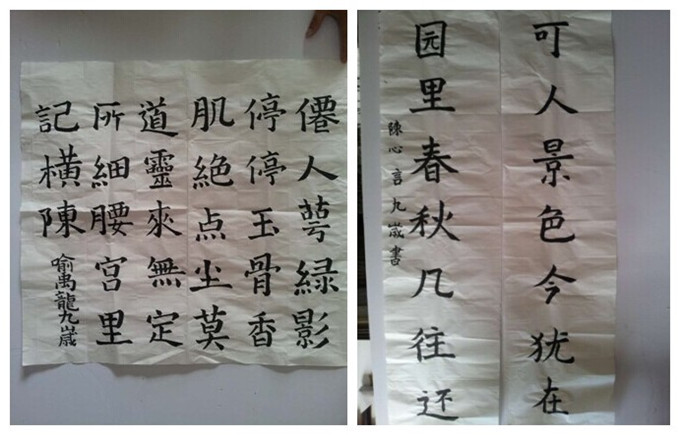 僊人萼緑影
停停玉骨香
肌絶点尘莫
道靈來無定
所細腰宮里
記橫陳
喻禹龍九歲
可人景色今犹在
园里春秋几往还
陳心言九歲書